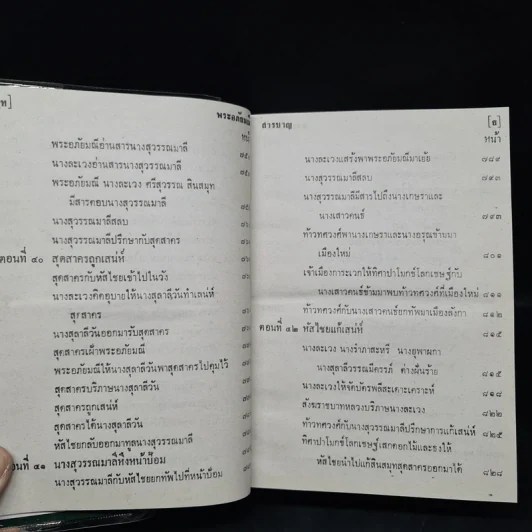 ท]
พระอภัยมณี
หน้า
พระอภัยมณีอ่านสารนางสุวรรณมาลี
นางละเวงอ่านสารนางสุวรรณมาลี
พระอภัยมณี นางละเวง ศรีสุวรรณ สินสมุท
มีสารตอบนางสุวรรณมาลี
นางสุวรรณมาลีสลบ
นางสุวรรณมาลีปรึกษากับสุดสาคร
ตอนที่ ๔๐ สุดสาครถูกเสน่ห์
สุดสาครกับหัสไชยเข้าไปในวัง
นางละเวงคิดอุบายให้นางสุลาลีวันทำเสน่ห์
สุดสาคร
นางสุลาลีวันออกมารับสุดสาคร
สุดสาครเฝ้าพระอภัยมณี
พระอภัยมณีให้นางสุลาลีวันพาสุดสาครไปคุมไว้
สุดสาครบริภาษนางสุลาลีวัน
สุดสาครถูกเสน่ห์
สุดสาครได้นางสุลาลีวัน
หัสไชยกลับออกมาทูลนางสุวรรณมาลี
ตอนที่ ๔๑ นางสุวรรณมาลีทิ้งหน้าป้อม
นางสุวรรณมาลีกับหัสไชยยกทัพไปที่หน้าป้อม
สารบาญ
หน้า
นางละเวงแสร้งพาพระอภัยมณีมาเย้ย ๗๘๙
นางสุวรรณมาลีสลบ ๗๙๓
นางสุวรรณมาลีมีสารไปถึงนางเกษราและ
นางเสาวคนธ์ ๗๙๓
ท้าวทศวงศ์พานางเกษราและนางอรุณข้ามมา
เมืองใหม่ ๘๐๑
เจ้าเมืองการะเวกให้ทิศาปาโมกข์โลกเชษฐ์กับ
นางเสาวคนธ์ข้ามมาพบท้าวทศวงศ์ที่เมืองใหม่ ๘๑๑
ท้าวทศวงศ์กับนางเสาวคนธ์ยกทัพมาเมืองลังกา ๘๑๒
ตอนที่ ๔๒ หัสไชยแก้เสน่ห์ ๘๑๕
นางละเวง นางรำภาสะหรี นางยุพาผกา
นางสุลาลีวรรณมีครรภ์ ต่างฝันร้าย ๘๑๕
นางละเวงให้จัดบัตรพลีสะเดาะเคราะห์
สังฆราชบาทหลวงบริภาษนางละเวง ๘๒๒
ท้าวทศวงศ์กับนางสุวรรณมาลีปรึกษาการแก้เสน่ห์ ๘๒๕
ทิศาปาโมกข์โลกเชษฐ์เสกดอกไม้และธงให้
หัสไชยนำไปแก้สินสมุทสุดสาครออกมาได้ ๘๒๘